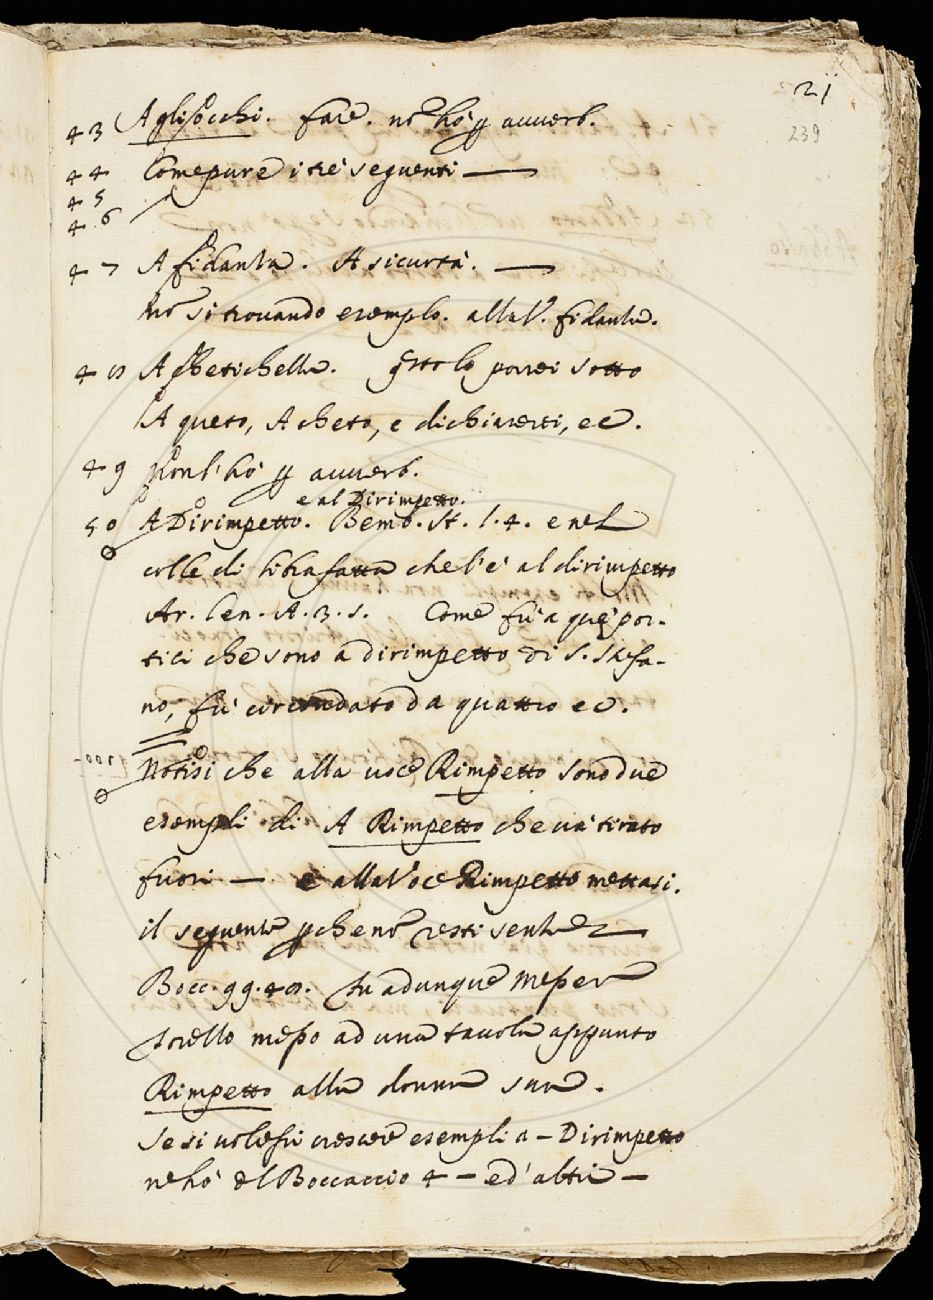 21
239
43 Agl'occhi. fare. nō hò ꝑ auuerb.
44 Come pure i trè seguenti —
45
46
47 A fidanza. A sicurtà. —
Nō si trouando esemplo. alla V. fidanza.
48 A Chetichella. q̄sto lo porrei sotto
A queto, A cheto, e dichiarerei, ec.
49 Non l'hò ꝑ auuerb.
e al Dirimpetto.
50 A Dirimpetto. Bemb. st. l. 4. e nel
colle di che l'è al dirimpetto
Ar. Len. A. 3. s. Come fù a què por-
tici che sono a dirimpetto di S. Stefa-
no, fù circundato da quattro ec.
Notisi che alla uoce Rimpetto sono due
esempli di A Rimpetto che uà tirato
fuori — e alla Voce Rimpetto mettasi.
il seguente ꝑche nō resti senza —
Bocc. g9. Fu adunque Messer
Torello messo ad una tauola appunto
Rimpetto alla donna sua.
Se si uolessi crescere esempli a — Dirimpetto
ne hò del Boccaccio 4 — ed' altri —